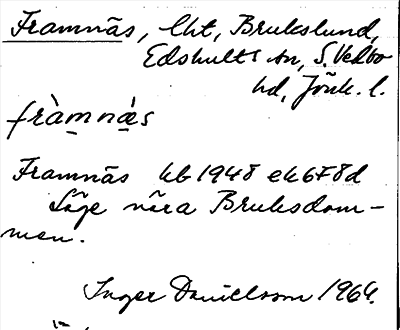 Framnäs, lht, Brukslund,
Edshults sn, S. Vedbo
hd, Jönk. l.
fràmnä́s
Framnäs kb 1948 ek 6F8d
Läge nära Bruksdam-
men.
Inger Danielsson 1964.